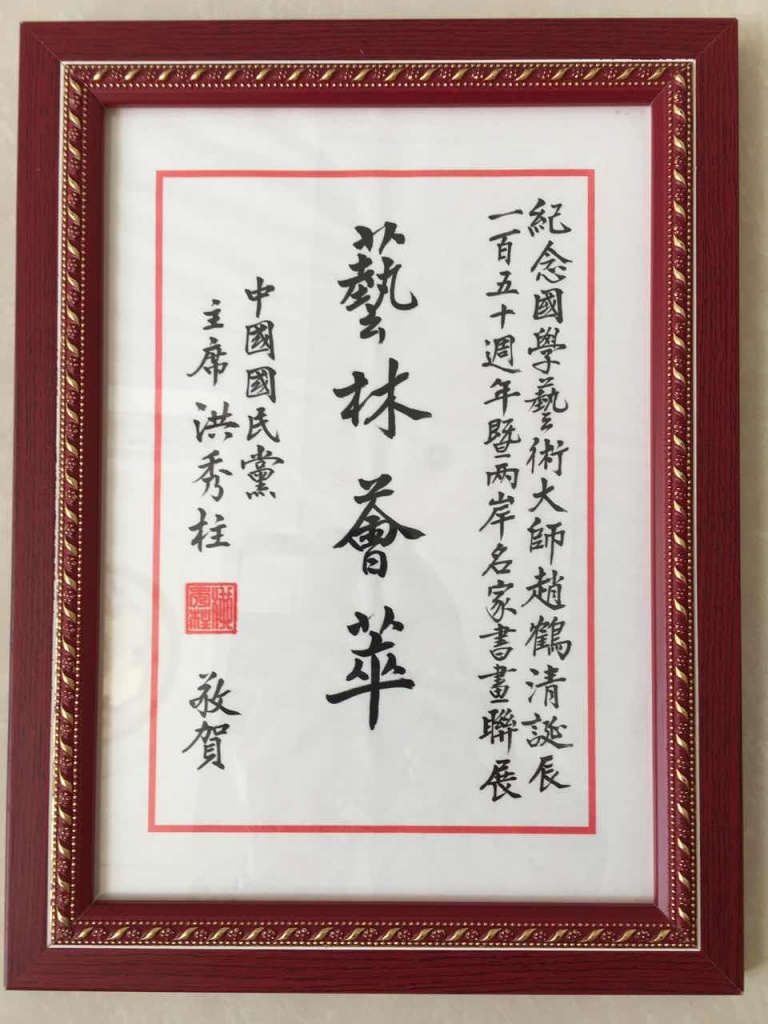 紀念國學藝術大師趙鶴清誕辰
一百五十週年暨兩岸名家書畫聯展
藝林薈萃
中國國民黨
主席 洪秀柱
敬賀